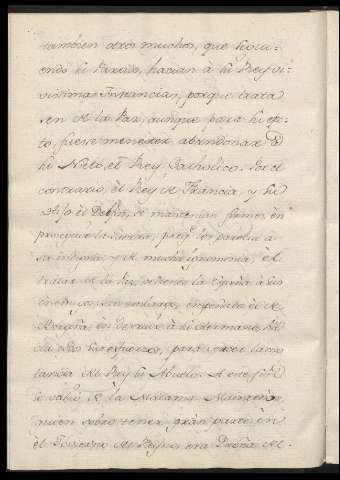 tambien otros muchos, que sigui-
endo su Partido, hacian à su Rey vi-
visimas Instancias, porque trata
sen de la Paz, aunque para su efec-
to, fuese menester abandonar à
su Nieto, el Rey Catholico. Por el
contrario, el Rey de Francia, y su
Hijo el Delfin, se mantenian firmes, en
proseguir la Guerra, porqe. les parecia à
ser indigna, y de mucha ignominia, el
tratar de la Paz, cediendo la España à sus
enemigos. Sin embargo, empeñado el de
Borgoña, en derribar à su Hermano, ha-
cia todos sus esfuerzos, para vencer la cons
tancia del Rey su Abuelo. A este fin
se valió de la Madama Maintenon,
quien sobre tener gran parte en
el Govierno del Reyno, era Dueña del